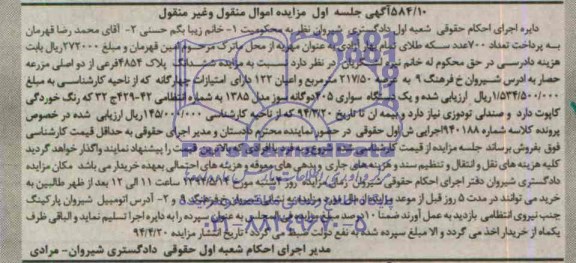 ۵۸۴/۱۰آگهی جلسه اول مزایده اموال منقول وغیر منقول
دایره اجرای احکام حقوقی شعبه اول دادگستری شیروان نظر به محکومیت ۱- خانم زیبا بگم حسنی ۲- آقای محمد رضا قهرمان
به پرداخت تعداد ۷۰۰عدد سکه طلای تمام بهار آزادی به عنوان مهریه از محل ماترک مرحوم امین قهرمانی و مبلغ ۲۷۲۰۰۰ریال بابت
هزینه دادرسی در حق محکوم له خانم در نظر دارد نسبت به مزایده ششدانگ پلاک ۴۸۵۴فرعی از دو اصلی مزرعه
حصار به آدرس شیروان خ فرهنگ ۹ به ۲۱۷/۵۰ مترمربع و اعیان ۱۲۲ دارای امتیازات چهارگانه که از ناحیه کارشناسی به مبلغ
۱/۵۳۴/۵۰۰/۰۰۰ریال ارزیابی شده و یک دستگاه سواری ۴۰۵دوگانه سوز مدل ۱۳۸۵ به شماره انتظامی ۴۲-۴۲۹ج ۳۲ که رنگ خوردگی
کاپوت دارد و صندلی تودوزی نیاز دارد و بیمه ان تا تاریخ ۹۴/۳/۲۰ که از ناحیه کارشناسی ۱۴۵/۰۰۰/۰۰۰ریال ارزیابی شده در خصوص
پرونده کلاسه شماره ۹۴۰۱۸۸اجرایی ش اول حقوقی در حضور نماینده محترم دادستان و مدیر اجرای حقوقی به حداقل قیمت کارشناسی
فوق بفروش برساند جلسه مزایده از قیمت کارشناسی شده شروع و به فرد یا افرادی که بالاترین قیمت را پیشنهاد نمایند واگذار خواهد گردید
کلیه هزینه های نقل و انتقال و تنظیم سند و هزینه های جاری و بدهی های معوقه و هزینه های احتمالی بعهده خریدار می باشد مکان مزایده
دادگستری شیروان دفتر اجرای احکام حقوقی شیروان زمان مزایده روز شنبه مورخ ساعت ۱۱ الی ۱۲ بعد از ظهر طالبین به
خرید می توانند در مدت ۵ روز قبل از موعد مزایده از مال مورد مزایده به نشانی شیروان خ فرهنگ ۹ و ۲- آدرس اتومبیل شیروان پارکینگ
جنب نیروی انتظامی بازدید به عمل آورند ضمنا ۱۰درصد مبلغ مزایده فی المجلس به عنوان سپرده را به دایره اجرا تسلیم نماید و الباقی ظرف
یکماه از خریدار اخذ می گردد و الا مبلغ سپرده شده به نفع دولت ضبط می گردد تاریخ انتشار مزایده ۹۴/۴/۲۰
مدیر اجرای احکام شعبه اول حقوقی دادگستری شیروان- مرادی